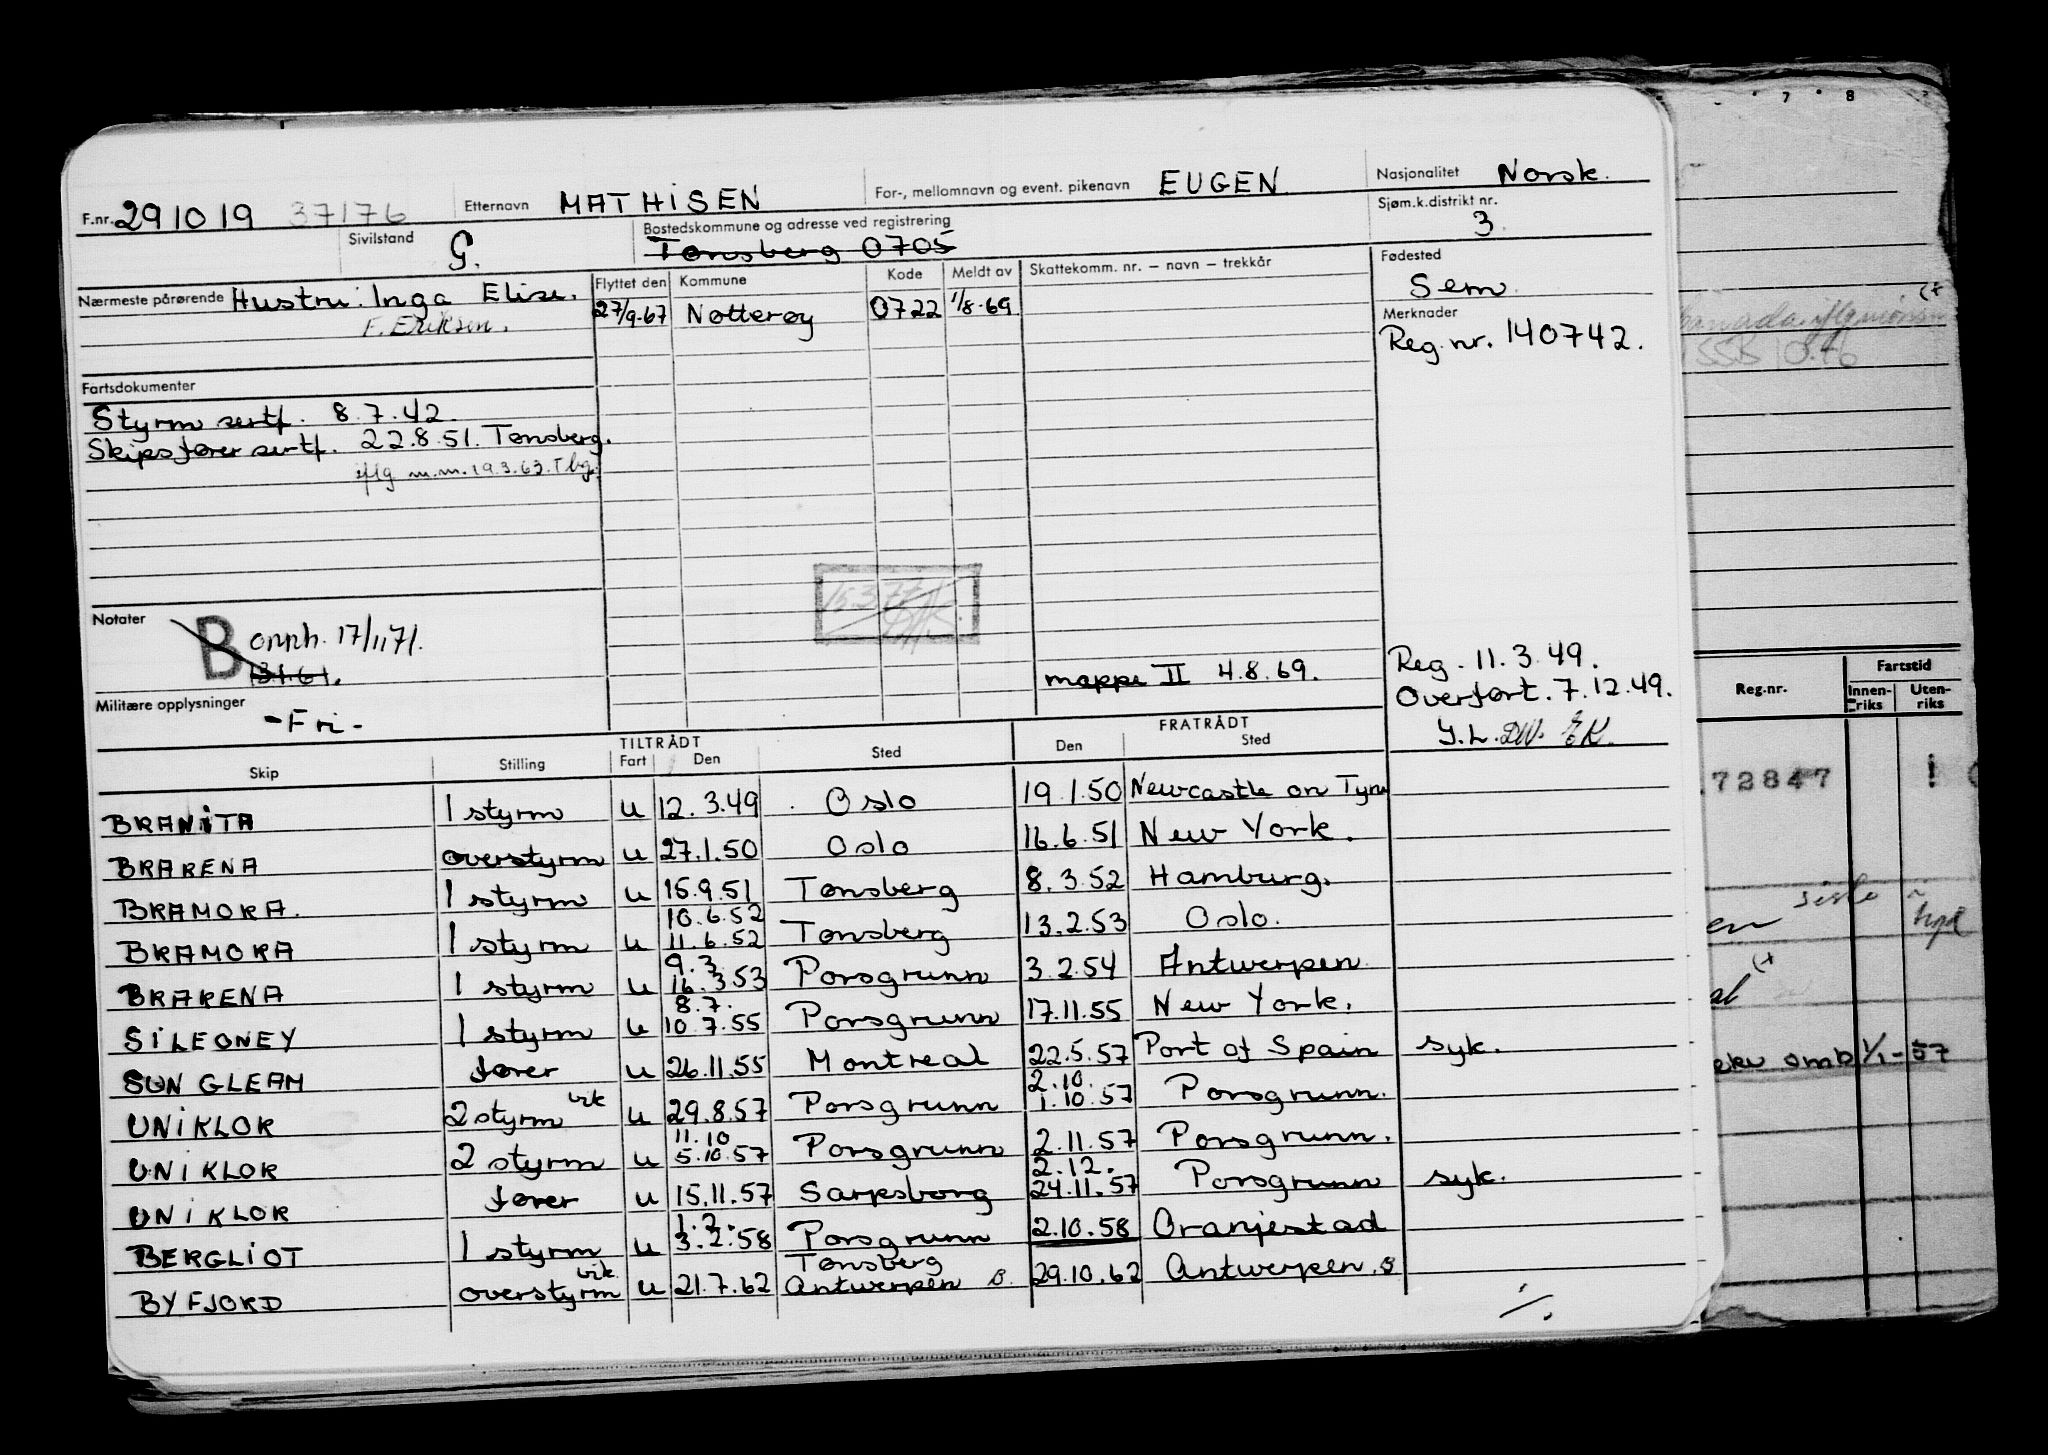 F.nr. 291019 37176 Etternavn MATHISEN For-, mellomnavn og event. pikenavn EUGEN Nasjonalitet Norsk.
Sivilstand G. Bostedskommune og adresse ved registrering Tønsberg 0705 Sjøm.k.distrikt nr. 3.
Nærmeste pårørende Hustru: Inga Elise. Flyttet den Kommune Kode Meldt av Skattekomm. nr. – navn – trekkår Fødested Sem
F. Eriksen. 27/9-67 Nøtterøy 0722 1/8-69 Merknader
Reg.nr. 140742.
Fartsdokumenter
Styrm sertf. 8.7.42.
Skipsfører sertf. 22.8.51. Tønsberg.
iflg m.m. 19.3.63. Tbg.
15.3.77
Notater B opph. 17/11 71.
13.1.61.
mappe II 4.8.69. Reg. 11.3.49.
Overført. 7.12.49.
Militære opplysninger -Fri- Y.L. DW. EK.
TILTRÅDT FRATRÅDT
Skip Stilling Fart Den Sted Den Sted
BRANITA 1 styrm u 12.3.49 Oslo 19.1.50 Newcastle on Tyne
BRARENA overstyrm u 27.1.50 Oslo 16.6.51 New York.
BRAMORA. 1 styrm u 15.9.51 Tønsberg 8.3.52 Hamburg.
BRAMORA 1 styrm u 10.6.52 11.6.52 Tønsberg 13.2.53 Oslo.
BRARENA 1 styrm u 9.3. 16.3.53 Porsgrunn 3.2.54 Antwerpen
SILEONEY 1 styrm u 8.7. 10.7.55 Porsgrunn 17.11.55 New York.
SUN GLEAM fører u 26.11.55 Montreal 22.5.57 Port of Spain syk.
UNIKLOR 2 styrm vik u 29.8.57 Porsgrunn 2.10. 1.10.57 Porsgrunn.
UNIKLOR 2 styrm u 11.10 5.10.57 Porsgrunn 2.11.57 Porsgrunn.
UNIKLOR fører u 15.11.57 Sarpsborg 2.12. 24.11.57 Porsgrunn syk.
BERGLIOT 1 styrm u 1.2. 3.2.58 Porsgrunn 2.10.58 Oranjestad
BYFJORD overstyrm vik. u 21.7.62 Tønsberg Antwerpen B. 29.10.62 Antwerpen. B
7 8
SSB 10.76
Reg.nr. Fartstid
Innen-riks Uten-riks
72847
siste
1/1-57